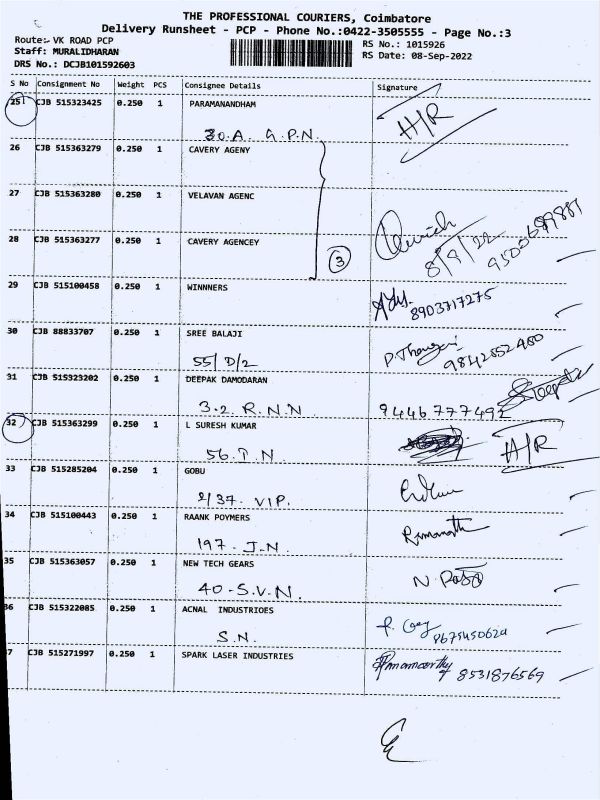 THE PROFESSIONAL COURIERS, Coimbatore
Delivery Runsheet - PCP - Phone No.:0422-3505555 - Page No.:3
Route:- VK ROAD PCP
RS No.: 1015926
Staff: MURALIDHARAN
RS Date: 08-Sep-2022
DRS No.: DCJB101592603
S No Consignment No Weight PCS Consignee Details Signature
25 CJB 515323425 0.250 1 PARAMANANDHAM H/R
30.A. G.P.N.
26 CJB 515363279 0.250 1 CAVERY AGENY
27 CJB 515363280 0.250 1 VELAVAN AGENC
28 CJB 515363277 0.250 1 CAVERY AGENCEY
3 8/9/22
29 CJB 515100458 0.250 1 WINNNERS
8903717275
30 CJB 88833707 0.250 1 SREE BALAJI
55/D/2 9842852480
31 CJB 515323202 0.250 1 DEEPAK DAMODARAN
3.2. R.N.N 9446777492
32 CJB 515363299 0.250 1 L SURESH KUMAR H/R
56.T.N.
33 CJB 515285204 0.250 1 GOBU
2/37. VIP.
34 CJB 515100443 0.250 1 RAANK POYMERS
197. J.N. Ramanath
35 CJB 515363057 0.250 1 NEW TECH GEARS
40-S.V.N.
36 CJB 515322085 0.250 1 ACNAL INDUSTRIOES
S.N.
37 CJB 515271997 0.250 1 SPARK LASER INDUSTRIES
8531876569